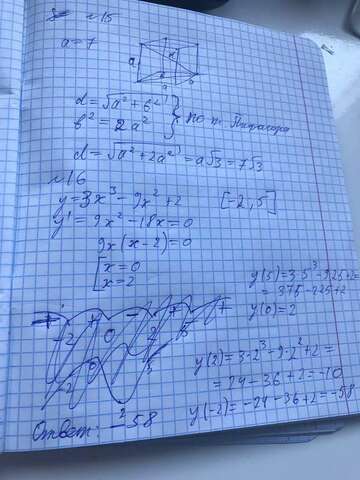 №15
a=7
a
a
d=√a²+b²
b²=2a²
} по т. Пифагора
d=√a²+2a²=a√3=7√3
№16
y=3x³-9x²+2 [-2,5]
y'=9x²-18x=0
9x(x-2)=0
x=0
x=2
y(5)=3·5³-9·25+2=
=375-225+2
y(0)=2
y(2)=3·2³-9·2²+2=
=24-36+2=-10
y(-2)=-24-36+2=-58
Ответ: -58